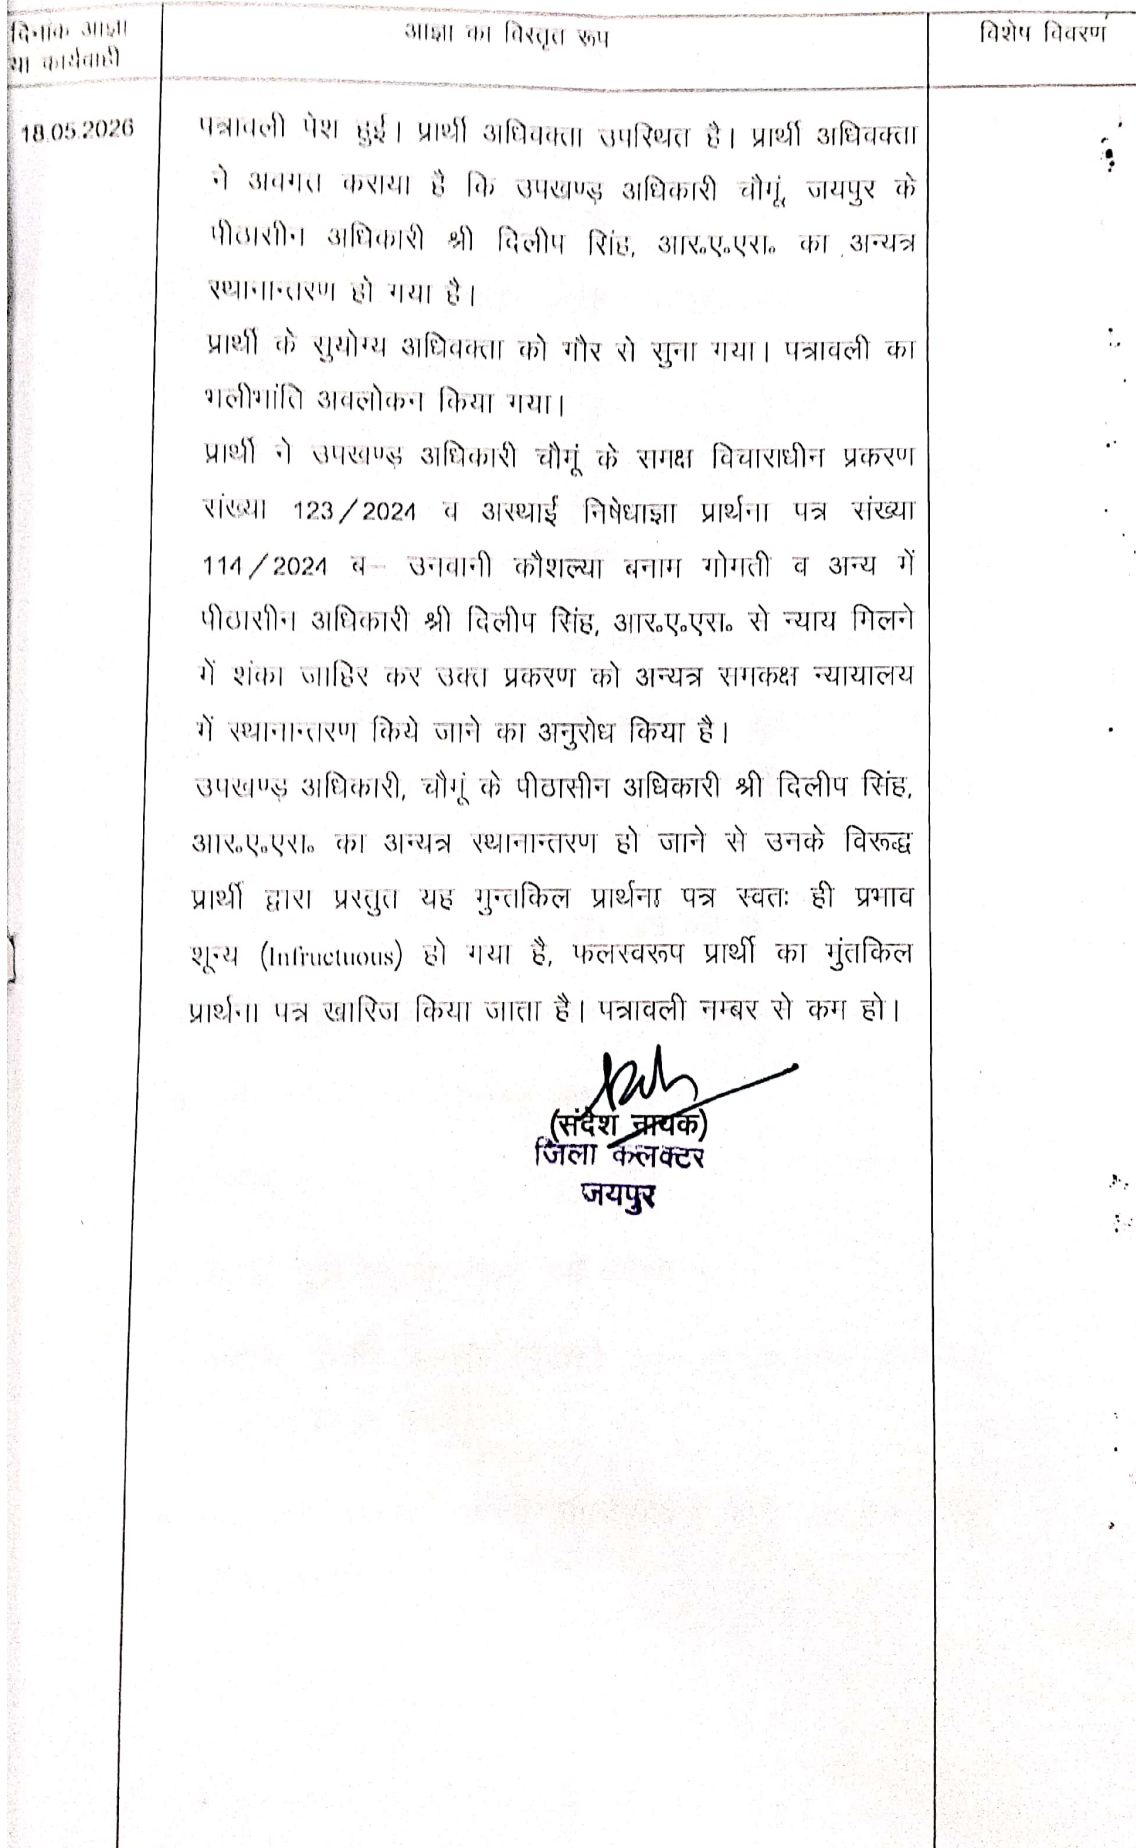 दिनांक आज्ञा
या कार्यवाही
आज्ञा का विस्तृत रूप
विशेष विवरण
18.05.2026
पत्रावली पेश हुई। प्रार्थी अधिवक्ता उपस्थित है। प्रार्थी अधिवक्ता
ने अवगत कराया है कि उपखण्ड अधिकारी चौमूं, जयपुर के
पीठासीन अधिकारी श्री दिलीप सिंह, आर०ए०एस० का अन्यत्र
स्थानान्तरण हो गया है।
प्रार्थी के सुयोग्य अधिवक्ता को गौर से सुना गया। पत्रावली का
भलीभांति अवलोकन किया गया।
प्रार्थी ने उपखण्ड अधिकारी चौमूं के समक्ष विचाराधीन प्रकरण
संख्या 123/2024 व अस्थाई निषेधाज्ञा प्रार्थना पत्र संख्या
114/2024 ब– उनवानी कौशल्या बनाम गोमती व अन्य में
पीठासीन अधिकारी श्री दिलीप सिंह, आर०ए०एस० से न्याय मिलने
में शंका जाहिर कर उक्त प्रकरण को अन्यत्र समकक्ष न्यायालय
में स्थानान्तरण किये जाने का अनुरोध किया है।
उपखण्ड अधिकारी, चौमूं के पीठासीन अधिकारी श्री दिलीप सिंह,
आर०ए०एस० का अन्यत्र स्थानान्तरण हो जाने से उनके विरूद्ध
प्रार्थी द्वारा प्रस्तुत यह मुन्तकिल प्रार्थना पत्र स्वतः ही प्रभाव
शून्य (Infructuous) हो गया है, फलस्वरूप प्रार्थी का मुंतकिल
प्रार्थना पत्र खारिज किया जाता है। पत्रावली नम्बर से कम हो।
(संदेश नायक)
जिला कलक्टर
जयपुर